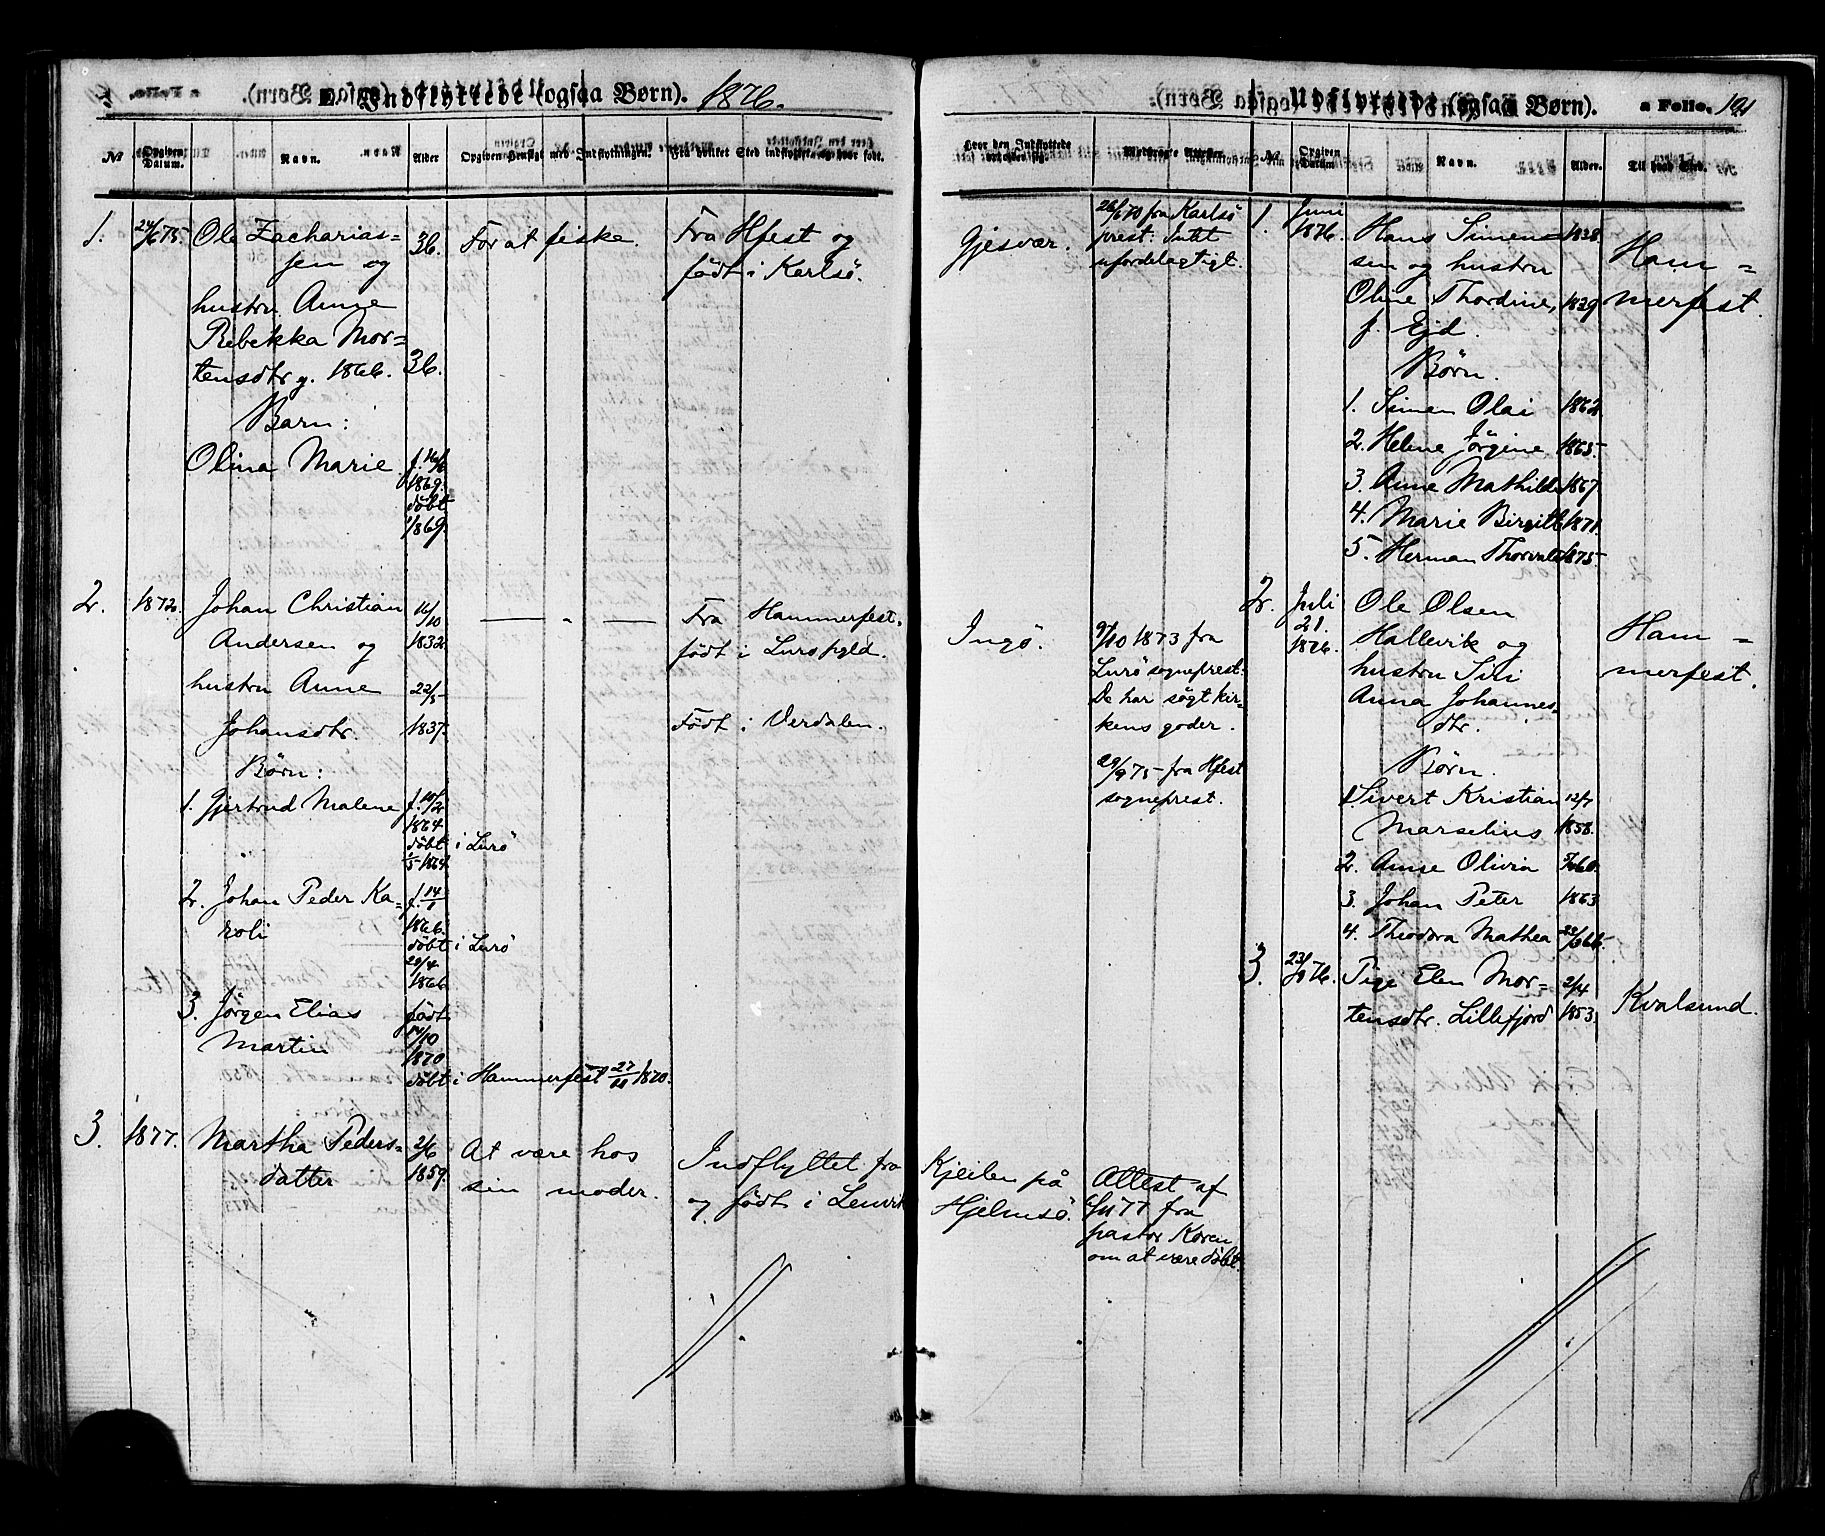 Indflyttede (ogsaa Børn). 1876.
No
Opgiven Datum.
Navn.
Alder
Opgiven Hensigt med Indflytningen.
Fra hvilket Sted indflyttet og hvor født.
1. 24/6 75 Ole Zacharias= 36. For at fiske. Fra Hfest og
sen og født i Karlsö.
hustru Anne
Rebekka Mor=
tensdtr g. 1866. 36.
Barn:
Olina Marie f. 16/6
1869.
döbt
1869.
2. 1872. Johan Christian 16/10 — " — Fra Hammerfest.
Andersen og 1832 født i Lurö pgld.
hustru Anne 22/5
Johansdtr. 1837. Födt i Verdalen.
Børn:
1. Gjertrud Malene f. 10/2
1864
döbt i Lurö
1864
2. Johan Peder Ka= f. 14/1
roli 1866.
döbt i Lurö
29/4
1866
3. Jörgen Elias født
Martin 14/10
1870
döbt i Hammerfest 27/11 1870.
3. 1877. Martha Peders= 2/6 At være hos Indflyttet fra
datter 1859. sin moder. og födt i Lenvik
Hvor den Indflyttede
Opgiven Datum
Navn.
Alder.
Til hvad Sted.
Udflyttede (ogsaa Børn). a Folio. 191
Gjesvær. 26/6 70 fra Karlsö
prest: Intet
ufordelagtigt.
Ingö. 9/10 1873 fra
Lurö sogneprest.
De har sögt kir=
kens goder.
29/9 75 fra Hfest
sogneprest.
Kjeilen på
Hjelmsö. Attest af
6/11 77 fra
pastor Koren
om at være döbt.
1. Juni Hans Simen= 1838. Ham=
1876. sen og hustru
Oline Thordine, 1839 merfest.
f. Ejd.
Børn.
1. Simen Olai 1862
2. Helene Jörgine 1865.
3. Anne Mathilde 1867.
4. Marie Birgitte 1871.
5. Herman Thorvald 1875.
2. Juli Ole Olsen
21. Hallevik og Ham=
1876. hustru Sili merfest.
Anna Johannes=
dtr.
Børn.
1. Sivert Kristian 12/7
Marselius 1858.
2. Anne Olivia
3. Johan Peter 1863
4. Theodora Mathea
3. 76. Pige Elen Mor= 2/4 Kvalsund.
tensdtr. Lillefjord 1853.